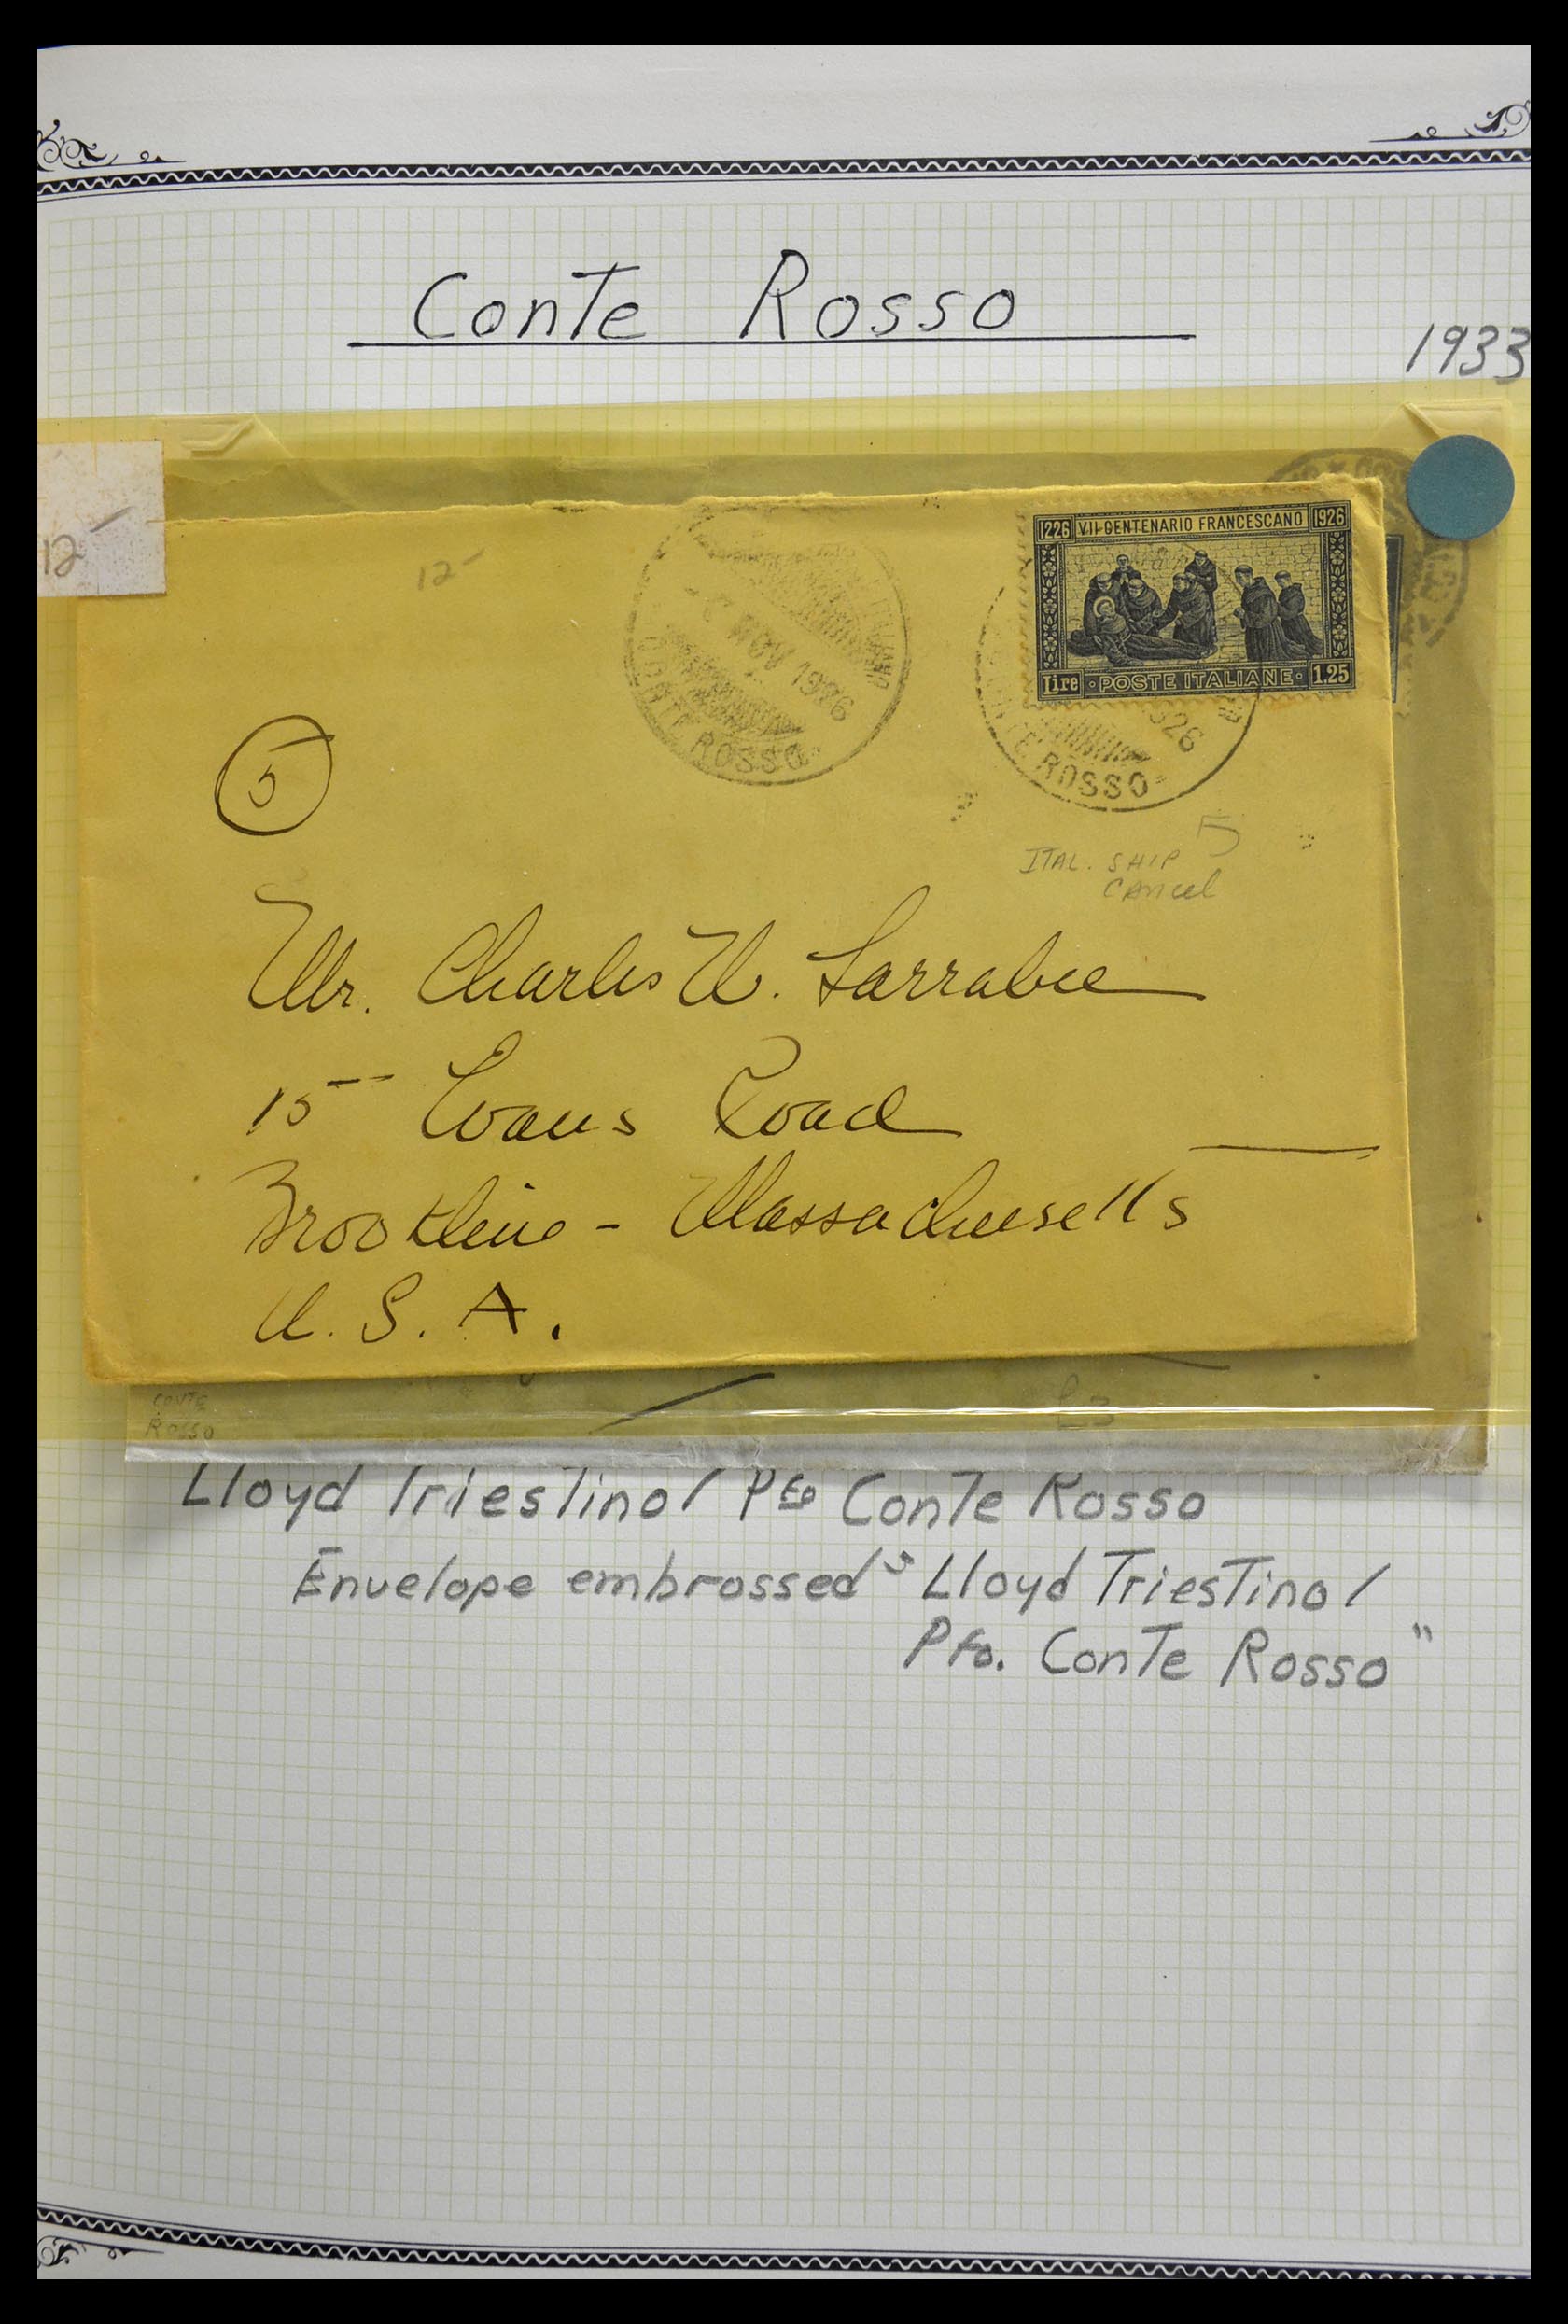 Conte Rosso
1933
12-
12-
-6 NOV 1926
CONTE ROSSO
1226 VII CENTENARIO FRANCESCANO 1926
Lire · POSTE ITALIANE · 1.25
1926
CONTE ROSSO
5
5
ITAL. SHIP
Cancel
Mr. Charles W. Larrabee
15 Evans Road
Brookline - Massachusetts
U. S. A.
CONTE
ROSSO
Lloyd Triestino / Pfo Conte Rosso
Envelope embrossed "Lloyd Triestino /
Pfo. Conte Rosso"